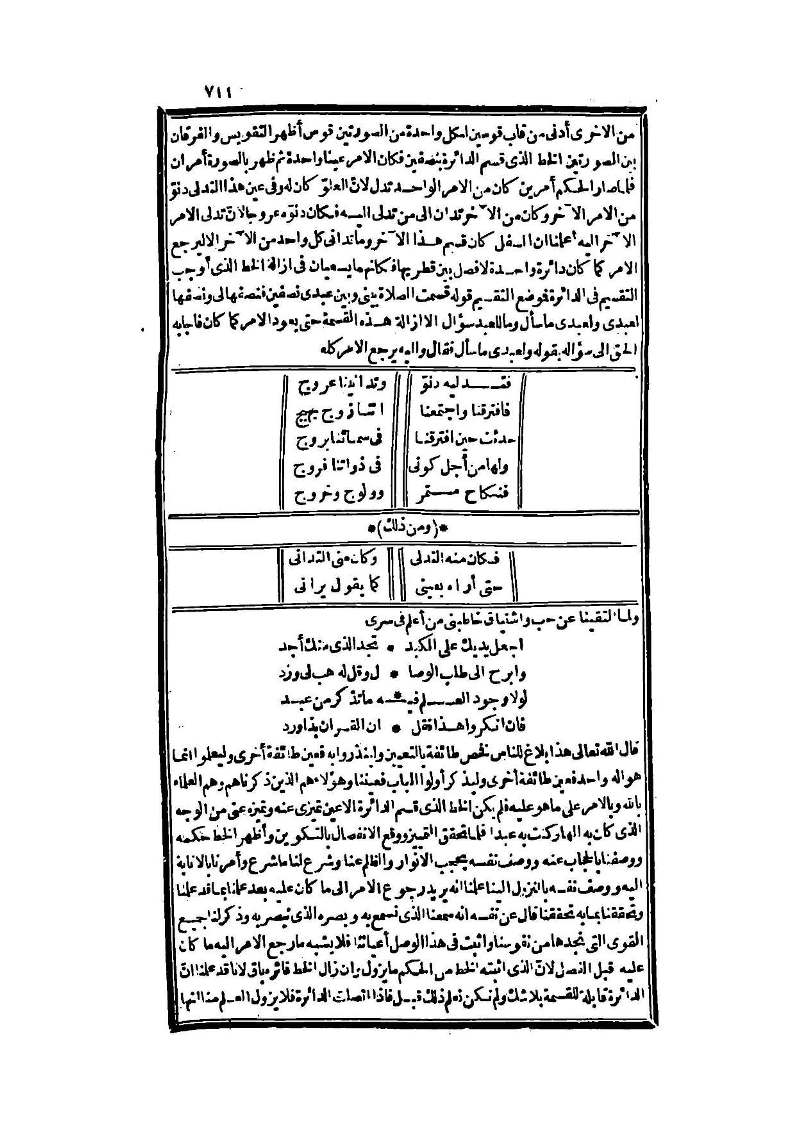 ٧١١
من الاخرى أدنى من قاب قوسين لكل واحدة من الصورتين قوس أظهر التقويس والفرقان
بين الصورتين الخط الذى قسم الدائرة بنصفين فكان الامر عينا واحدة ثم ظهر بالصورة أمران
فلما صار الحكم أمرين كان من الامر الواحد تدل لان العلو كان له وفى عين هذا التدلى دنو
من الامر الآخر وكان من الآخر تدان الى من تدلى اليه فكان دنوه عروجا لان تدلى الامر
الآخر اليه أعلمنا ان السفل كان قسم هذا الآخر وما تدانى كل واحد من الآخر الا ليرجع
الامر كما كان دائرة واحدة لا فصل بين قطريها فكانهما يسعيان فى ازالة الخط الذى أوجب
التقسيم فى الدائرة فموضع التقسيم قوله قسمت الصلاة بينى وبين عبدى نصفين فنصفها لى ونصفها
لعبدى ولعبدى ما سأل وما للعبد سؤال الا ازالة هذه القسمة حتى يعود الامر كما كان فاجابه
الحق الى سؤاله بقوله ولعبدى ما سأل فقال واليه يرجع الامر كله
فتدليه دنو وتدانينا عروج
فافترقنا واجتمعنا انما زوج بهيج
حدثت حين افترقنا فى سمائنا بروج
ولها من أجل كونى فى ذواتنا فروج
فنكاح مستمر وولوج وخروج
*(ومن ذلك)*
فكان منه التدلى وكان منى التدانى
حتى أراه بعينى كما يقول يرانى
ولما التقينا عن حب واشتياق خاطبنى من أعلم فى سرى
اجعل يديك على الكبد * تجد الذى منك أجد
وابرح الى طلب الوصا * ل وقل له هب لى وزد
لولا وجود العلم فيه * ما تذكر من عبد
فان انكروا هذا فقل * ان القران بذا ورد
قال الله تعالى هذا بلاغ للناس فخص طائفة بالتعيين ولينذروا به فعين طائفة أخرى وليعلموا انما
هو اله واحد فعين طائفة أخرى وليذكر أولوا الالباب فعيننا وهؤلاء هم الذين ذكرناهم وهم العلماء
بالله وبالامر على ما هو عليه فلم يكن الخط الذى قسم الدائرة الا عين تميزى عنه وتميزه عنى من الوجه
الذى كان به الها وكنت به عبدا فلما تحقق التميز ووقع الانفصال بالتكوين وأظهر الخط حكمه
ووصفنا بالحجاب عنه ووصف نفسه بحجب الانوار والظلم عنا وشرع لنا ما شرع وأمرنا بالانابة
اليه ووصف نفسه بالنزول الينا علمنا انه يريد رجوع الامر الى ما كان عليه بعد علمنا بما قد علمنا
وتحققنا بما به تحققنا قال عن نفسه انه سمعنا الذى نسمع به وبصره الذى نبصر به وذكر لنا جميع
القوى التى نجدها من نفوسنا واثبت فى هذا الوصل أعياننا فلا يشبه ما رجع الامر اليه ما كان
عليه قبل الفصل لان الذى اثبته الخط من الحكم ما يزول وان زال الخط فاثره باق لانا قد علمنا ان
الدائرة قابلة للقسمة بلا شك ولم نكن نعلم ذلك قبل فاذا اتصلت الدائرة فلا يزول العلم منا انها